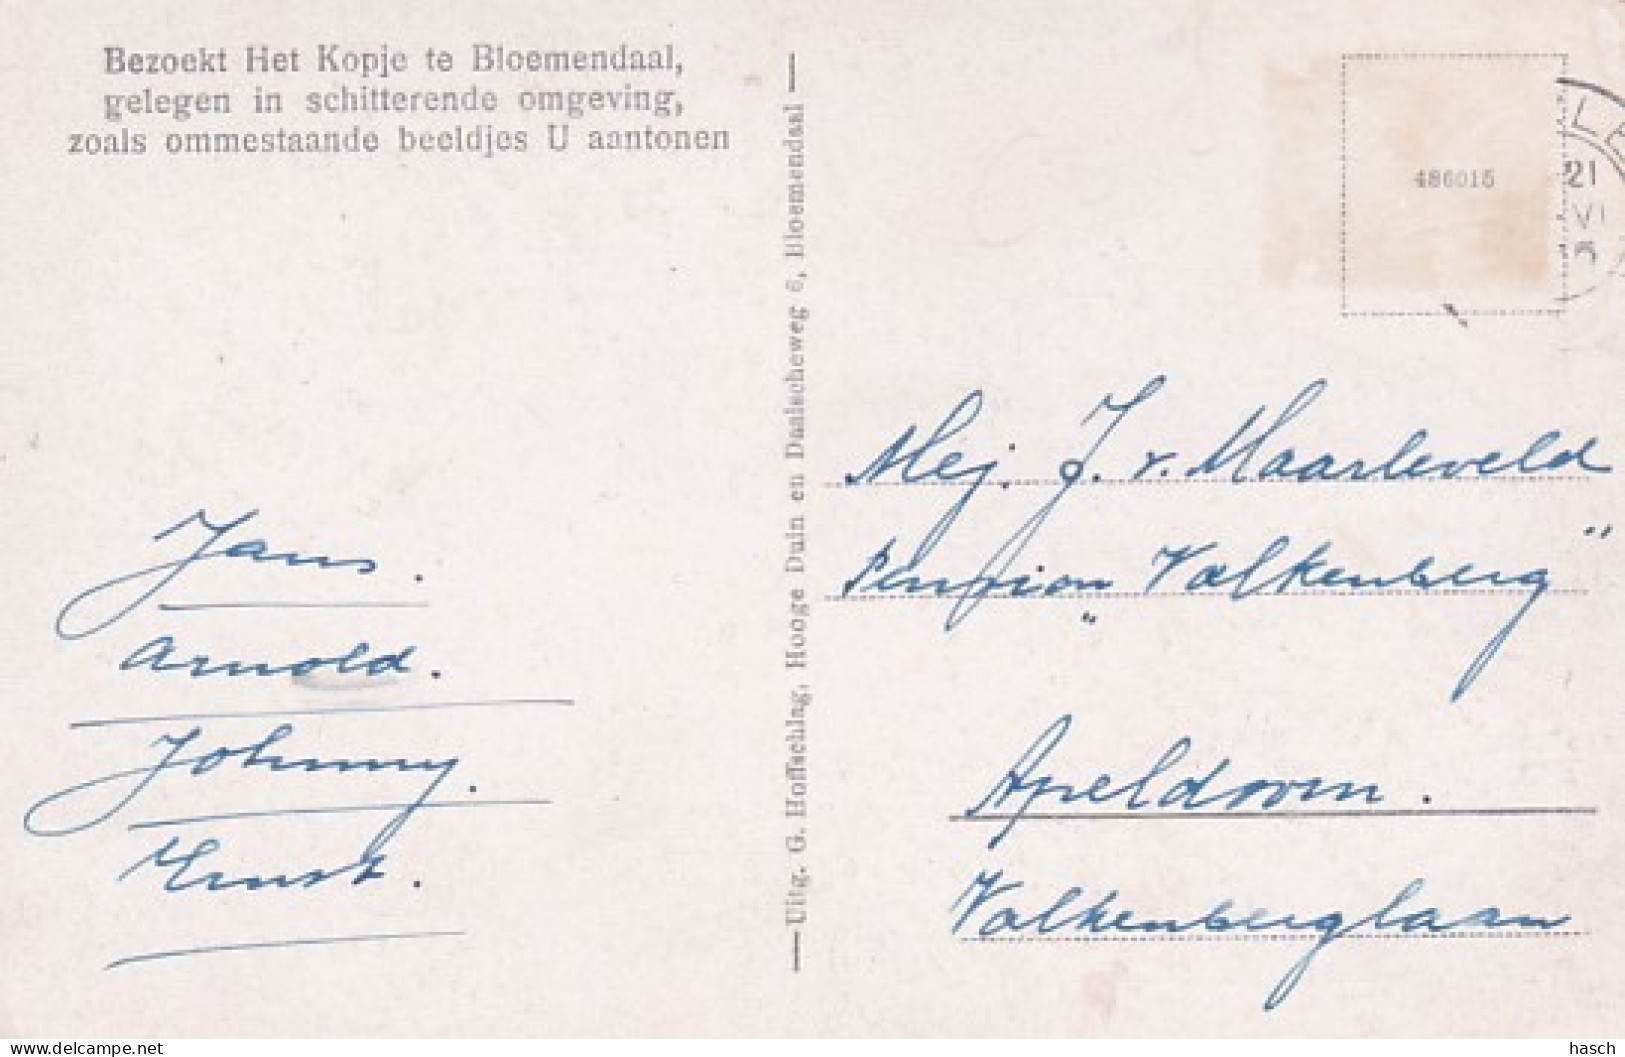 Bezoekt Het Kopje te Bloemendaal,
gelegen in schitterende omgeving,
zoals ommestaande beeldjes U aantonen
Jans.
Arnold.
Johnny.
Ernst.
Uitg. G. Hoffschlag, Hooge Duin en Daalscheweg 6, Bloemendaal
486015
21
VI
5
Mej. J. v. Maarleveld
Pension „Valkenberg”
Apeldoorn.
Valkenberglaan
delcampe.net
hasch